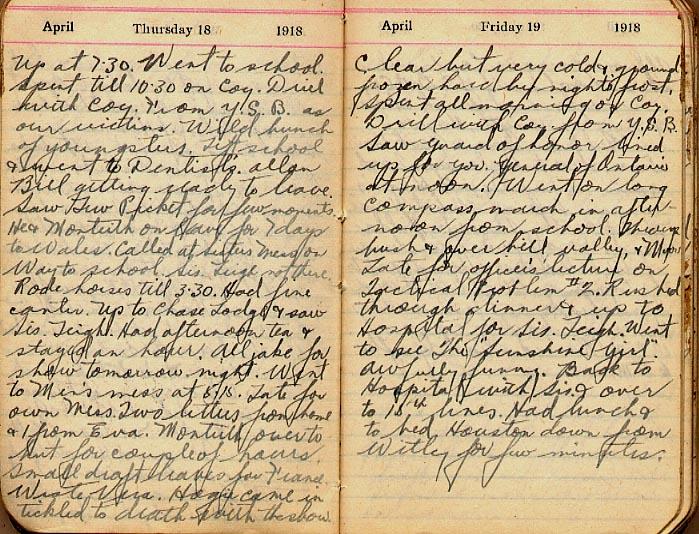 April Thursday 18 1918
Up at 7:30. Went to school.
Spent till 10:30 on Coy. Drill
with Coy. from Y.S.B. as
our victims. Wild bunch
of youngsters. Left school
& went to Dentist's. Allan
Bell getting ready to leave.
Saw Geo Picket for few moments.
He & Monteith on leave for 7 days
to Wales. Called at Sisters Mess on
Way to school. Sis. Leigh not there.
Rode horses till 3:30. Had fine
canter. Up to Chase Lodge & saw
Sis. Leigh. Had afternoon tea &
stayed an hour. All jake for
show tomorrow night. Went
to Men's mess at 5:15. Late for
own Mess. Two letters from home
& 1 from Eva. Monteith over to
hut for couple of hours.
Small draft leaves for France.
Wrote Vera. Hogg came in
tickled to death with the show.
April Friday 19 1918
Clear but very cold & ground
frozen hard by night's frost.
Spent all morning on Coy.
Drill with Coy from Y.S.B.
Saw guard of honor lined
up for Gov. General of Ontario
at noon. Went on long
compass march in after-
noon from school. Through
bush & over hill, valley, & Moor
Late for officer's lecture on
Tactical Problem #2. Rushed
through dinner & up to
Hospital for Sis. Leigh. Went
to see The "Sunshine Girl"
awfully funny. Back to
Hospital with Sis. & over
to 18th lines. Had lunch &
to bed Houston down from
Witley for few minutes.